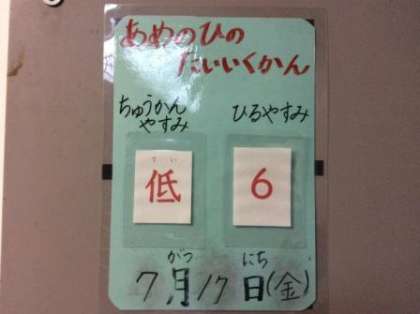 あめのひの
たいいくかん
ちゅうかん
やすみ
ひるやすみ
てい
低
6
がつ にち
7月17日(金)